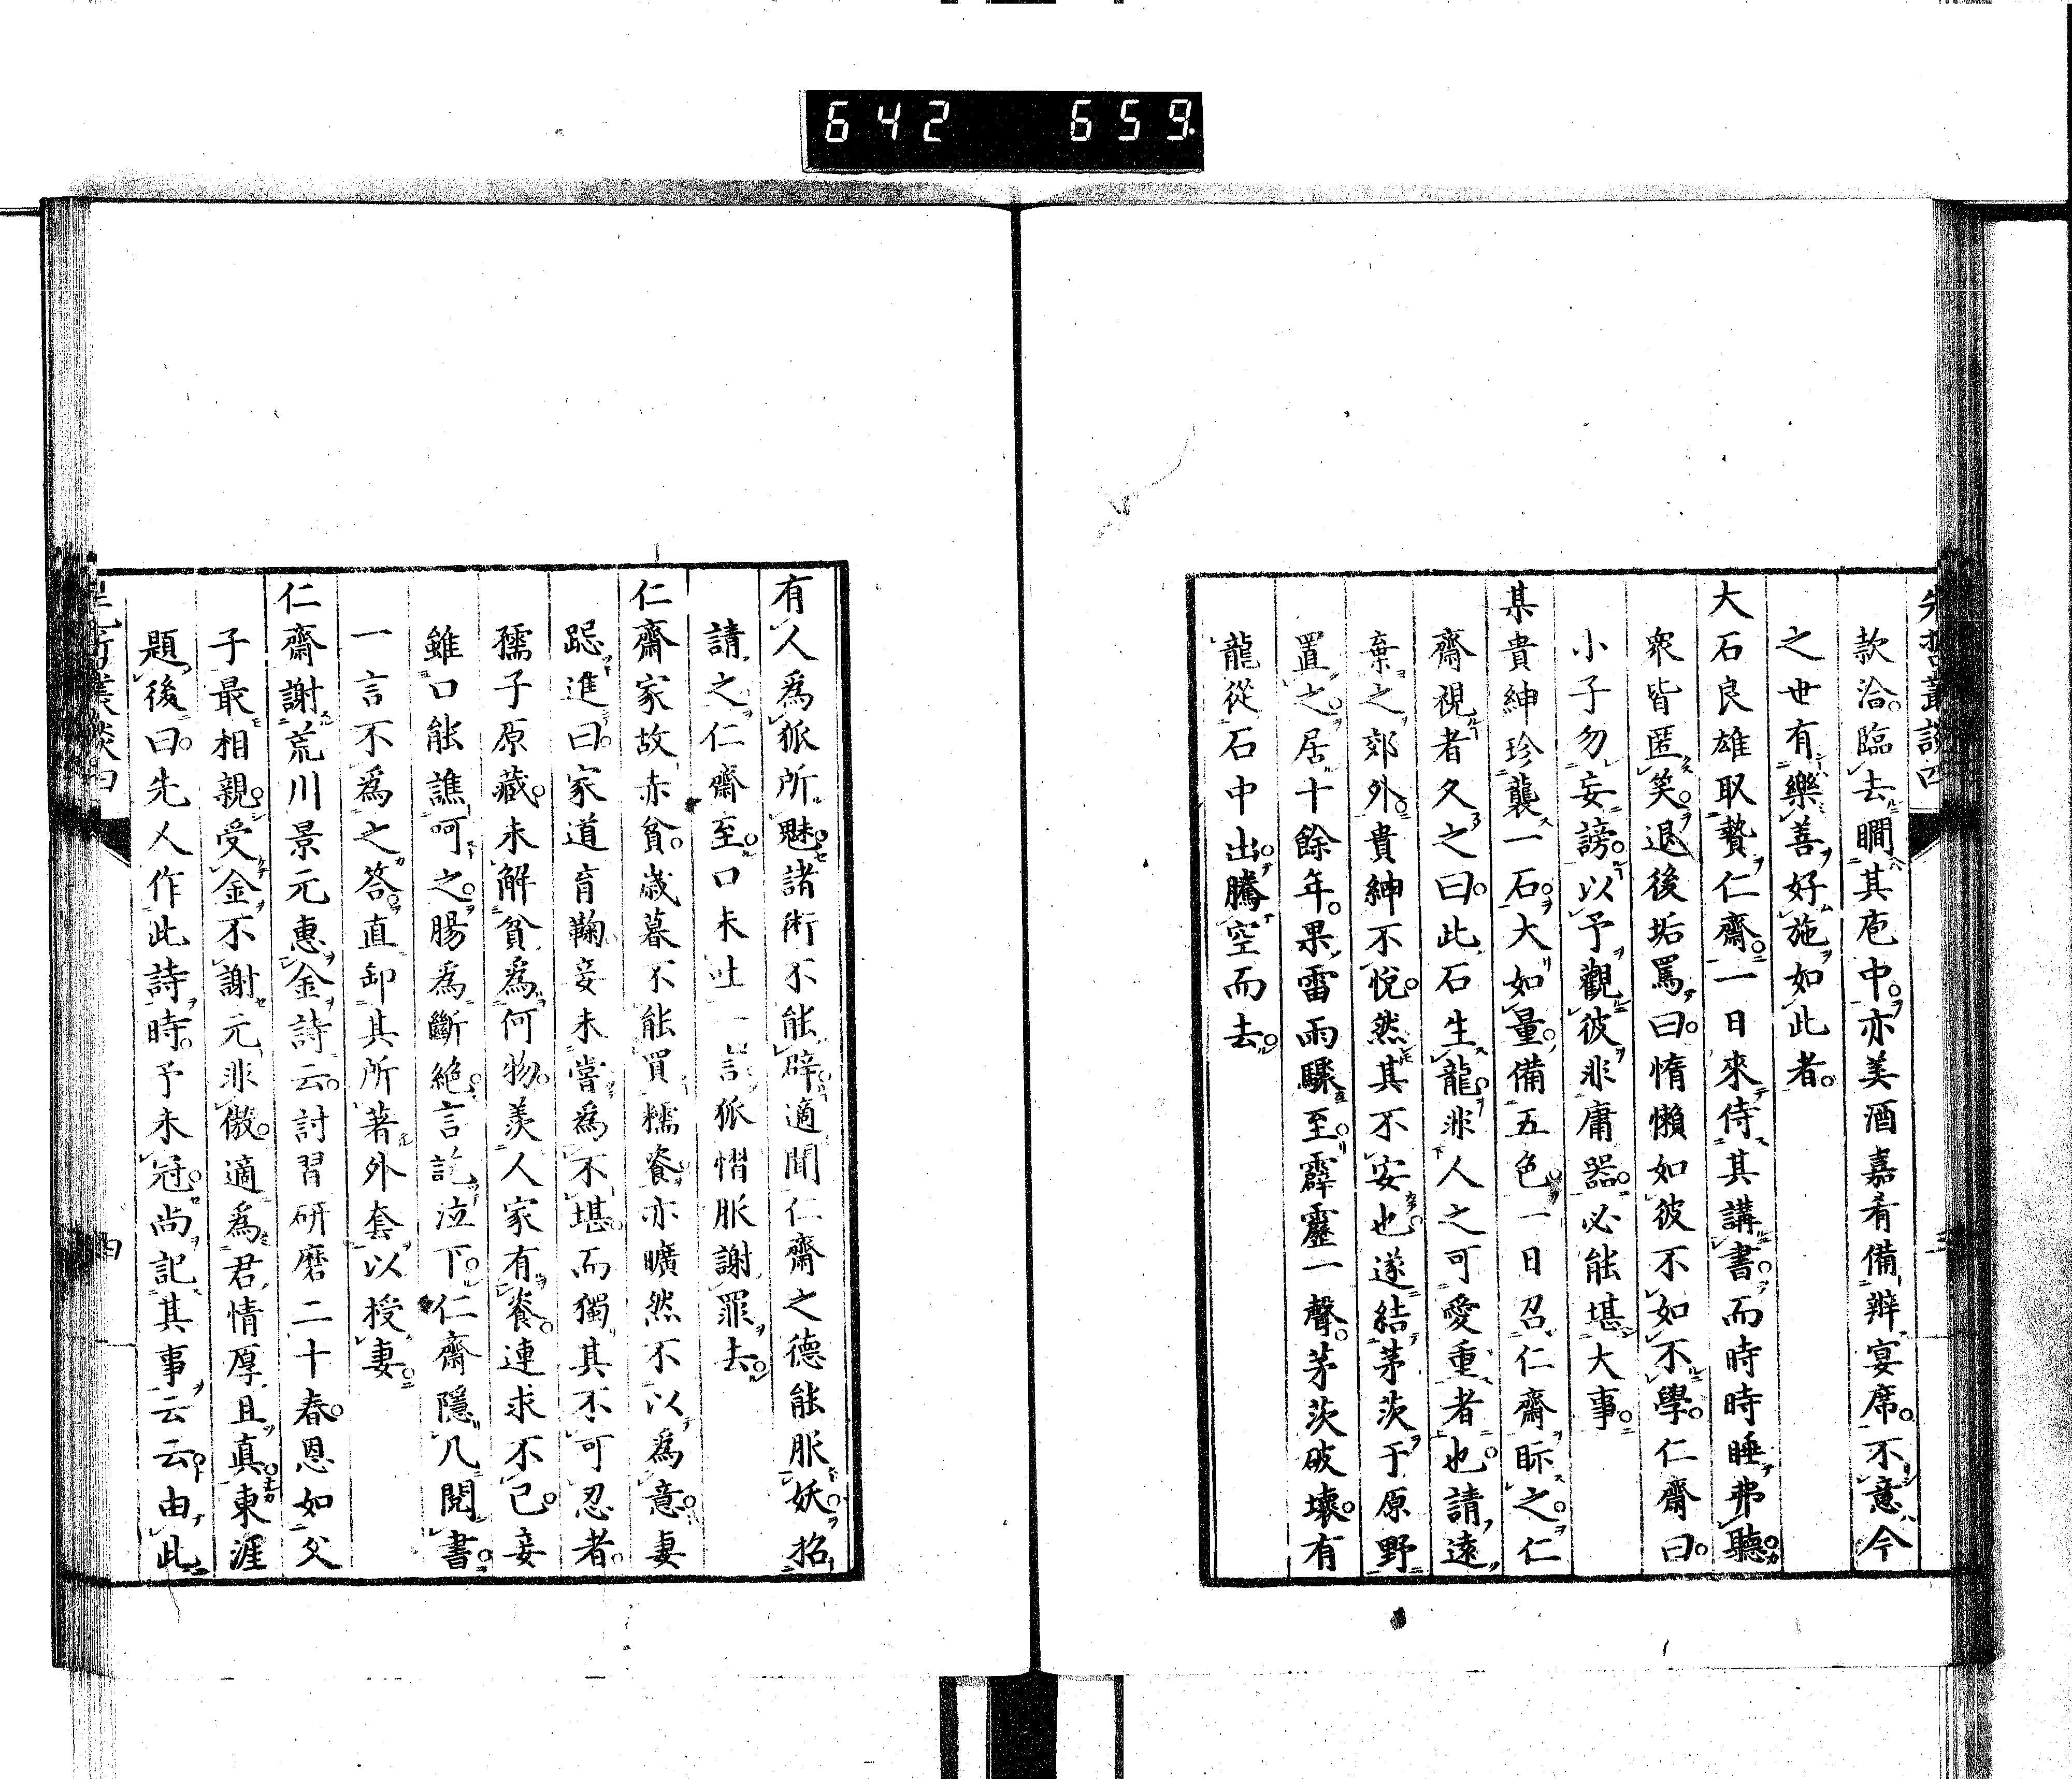 642 659
先哲叢談四
款洽。臨去瞯其庖中。亦美酒嘉肴備辦宴席。不意今
之世有樂善好施如此者。
大石良雄取贄仁齋。一日來侍其講書。而時時睡弗聽。
衆皆匿笑。退後垢罵曰。惰懶如彼不如不學。仁齋曰。
小子勿妄謗。以予觀彼非庸器。必能堪大事。
某貴紳珍襲一石。大如量。備五色。一日召仁齋眎之。仁
齋視者久之曰。此石生龍。非人之可愛重者也。請遠
棄之郊外。貴紳不悅。然其不安也。遂結茅茨于原野
置之。居十餘年。果雷雨驟至。霹靂一聲。茅茨破壞。有
龍從石中出。騰空而去。
有人爲狐所魅。諸術不能辟。適聞仁齋之德能服妖。招
請之。仁齋至。口未吐一言。狐慴服謝罪去。
仁齋家故赤貧。歲暮不能買糯餈。亦曠然不以爲意。妻
跽進曰。家道育鞠。妾未嘗爲不堪。而獨其不可忍者。
孺子原藏。未解貧爲何物。羨人家有餈。連求不已。妾
雖口能譙呵之。腸爲斷絕。言訖泣下。仁齋隱几閱書。
一言不爲之答。直卸其所著外套。以授妻。
仁齋謝荒川景元惠金詩云。討習研磨二十春。恩如父
子最相親。受金不謝元非傲。適爲君情厚且真。東涯
題後曰。先人作此詩時。予未冠。尚記其事云云。由此
先哲叢談四
四